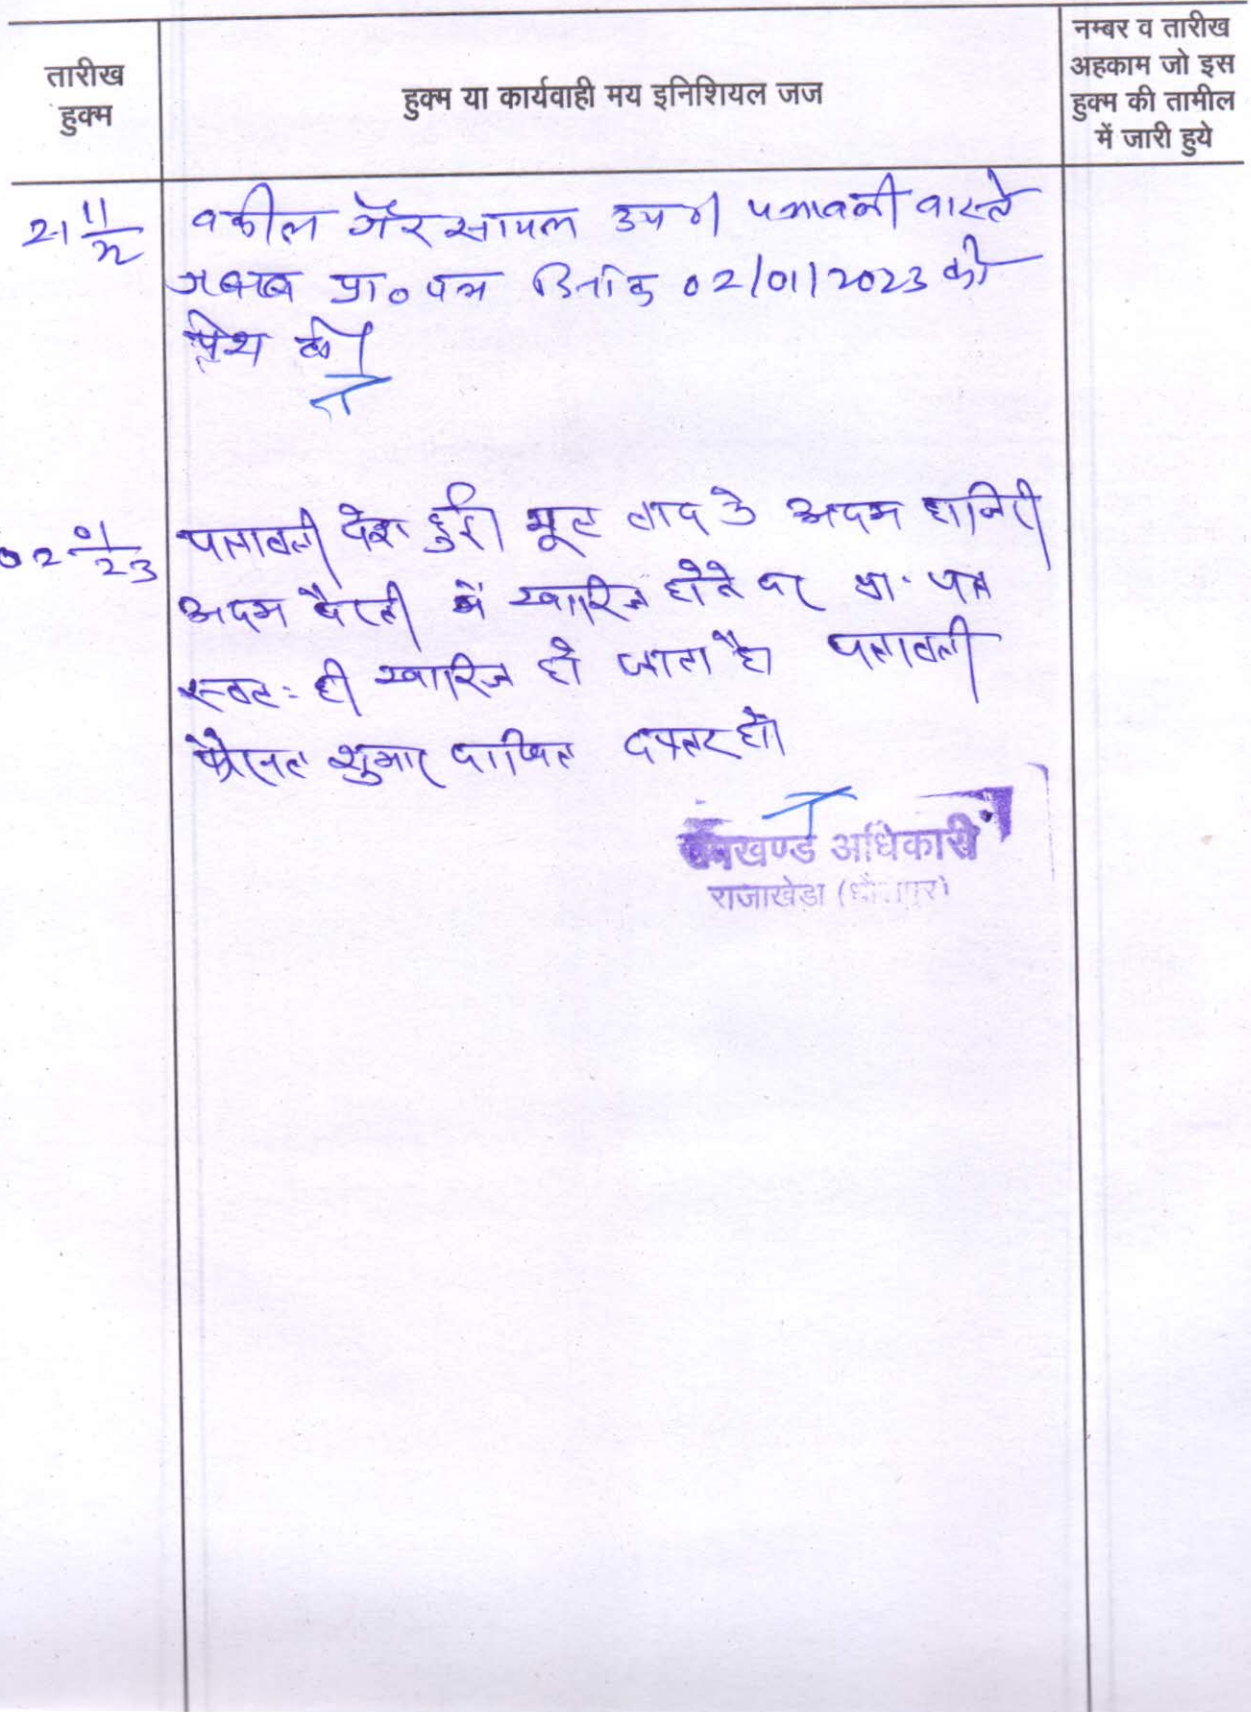 तारीख
हुक्म
हुक्म या कार्यवाही मय इनिशियल जज
नम्बर व तारीख
अहकाम जो इस
हुक्म की तामील
में जारी हुये
21 11/22 वकील गैर सायल उप0। पत्रावली वास्ते
जबाब प्रा० पत्र दिनांक 02/01/2023 को
पेश हो।
02 01/23 पत्रावली पेश हुई। मूल वाद के अदम हाजिरी
अदम पैरवी में खारिज होने पर प्रा. पत्र
स्वत: ही खारिज हो जाता है। पत्रावली
फैसल शुमार दाखिल दफ्तर हो।
उपखण्ड अधिकारी
राजाखेडा (धौलपुर)